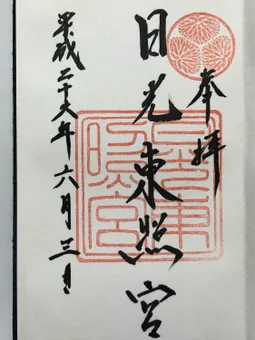 奉拝
日光東照宮
平成二十六年六月三日